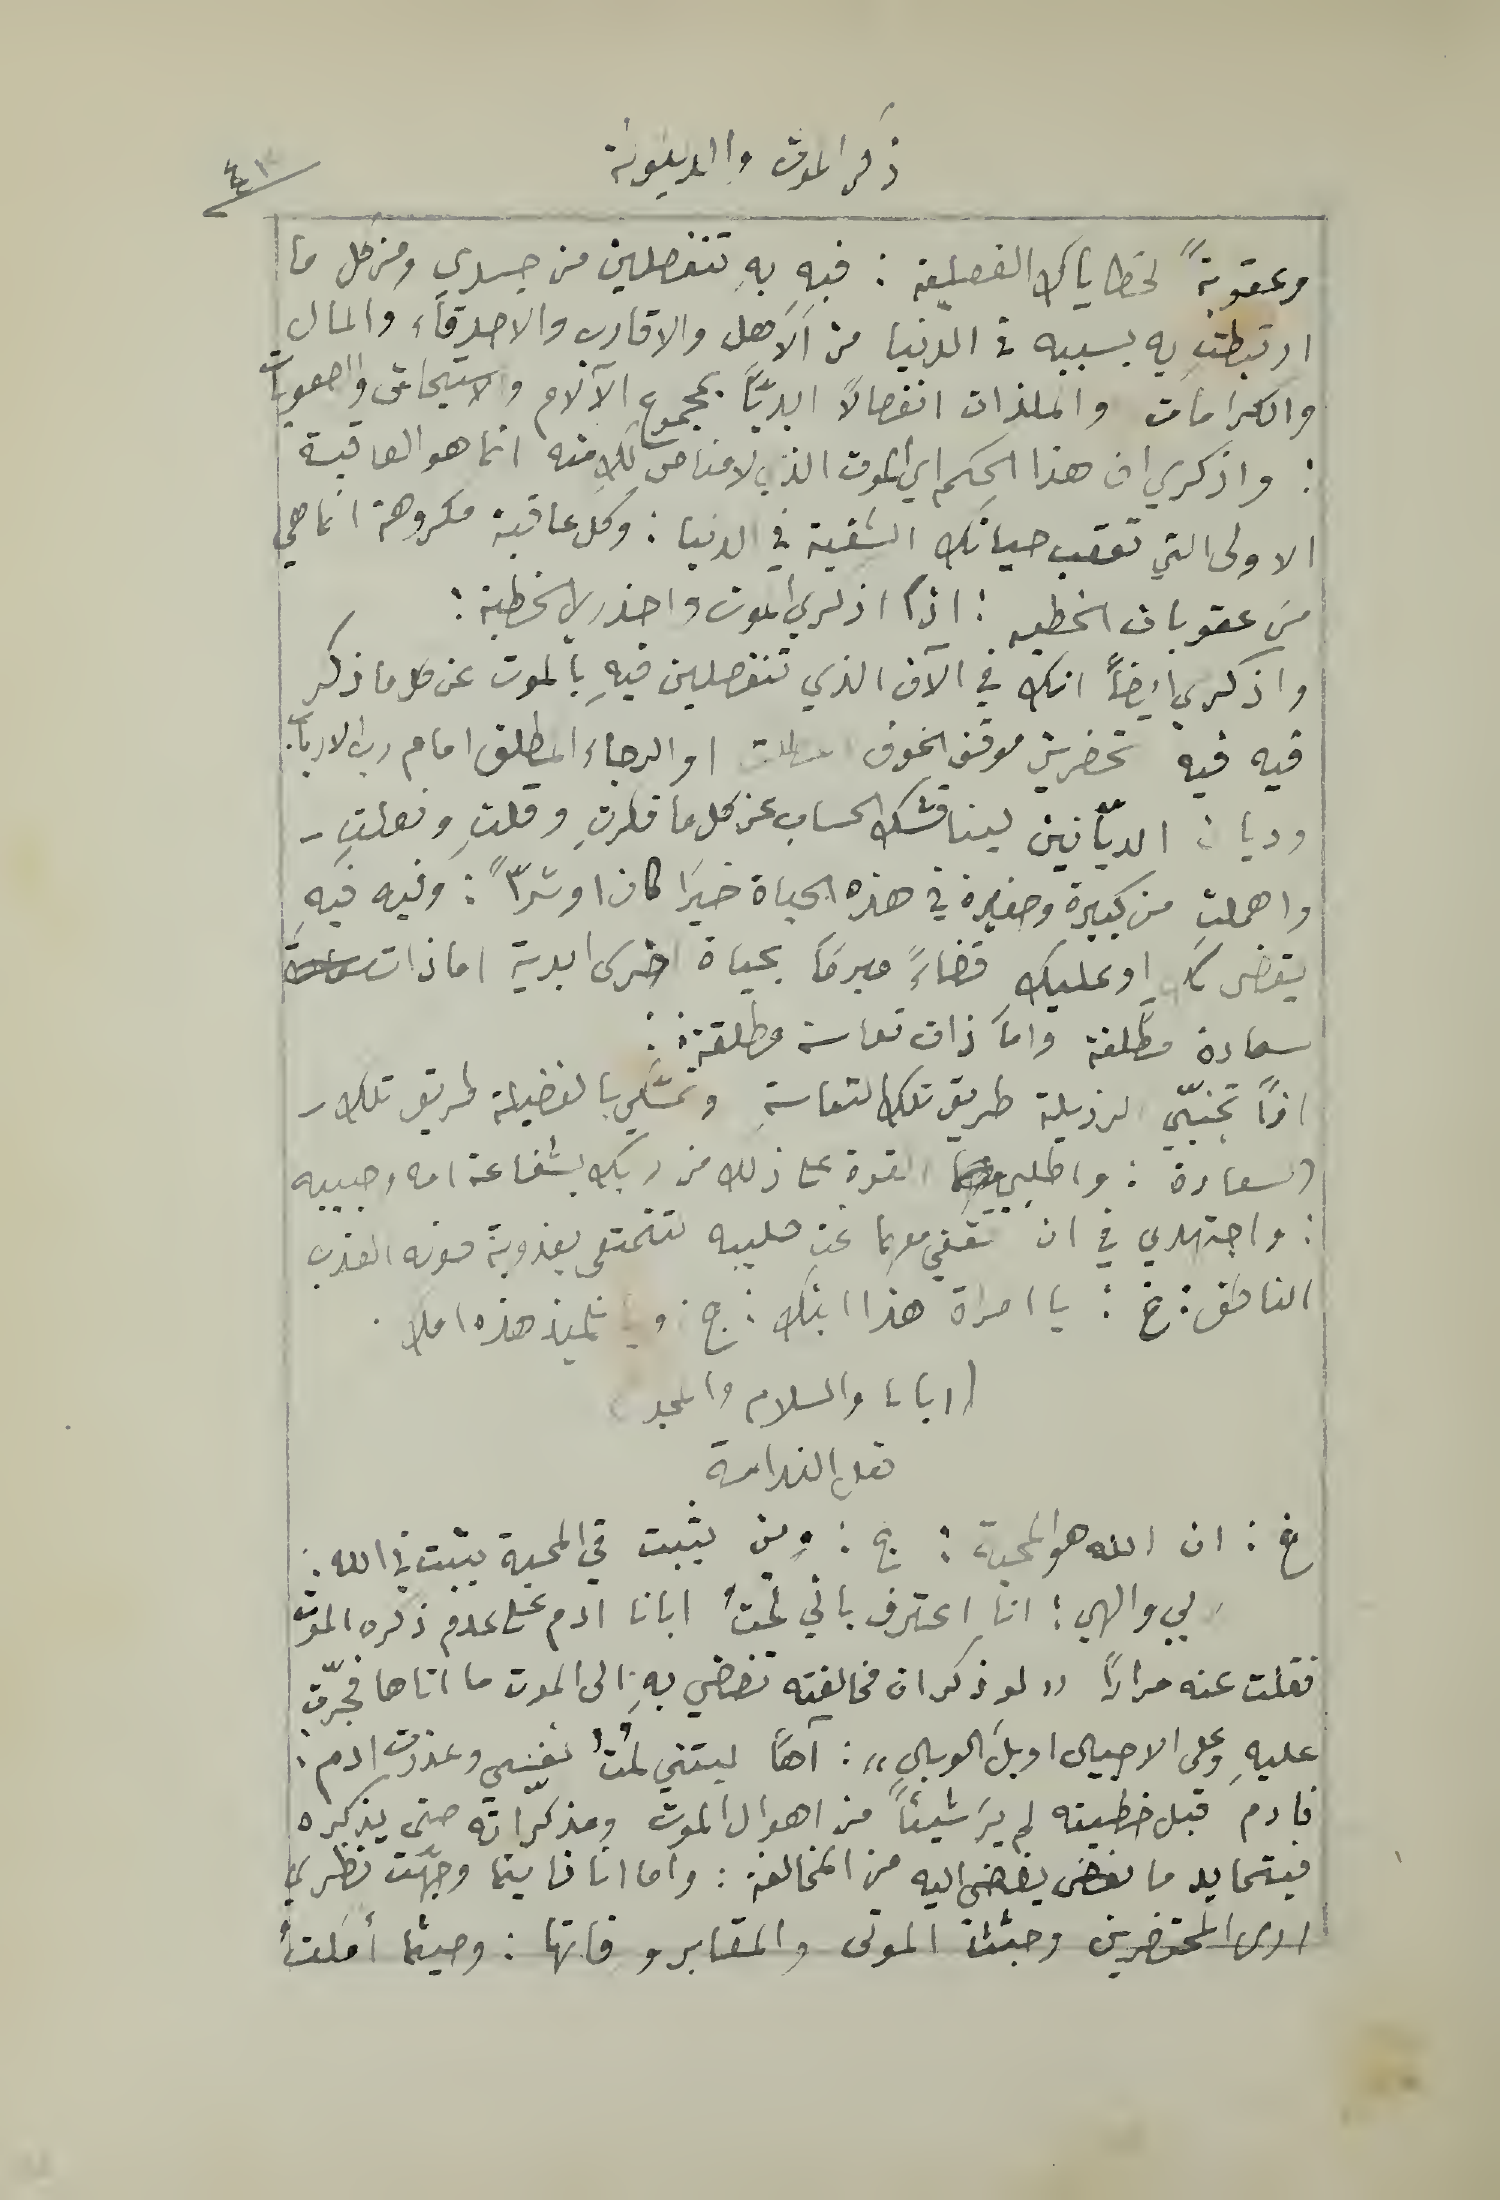 ذكر الموت والدينونة
٤٣
وعقوبةً لخطاياك الفضيلية : فبه بهِ تنفصلين من جسدي ومن كل ما
ارتبطتِ به بسببه في الدنيا من الاهل والاقارب والاصدقاء والمال
والكرامات والملذات انفصالاً ابديًّا بمجموع الآلام والصعوبات
: واذكري ان هذا الحكم اي الموت الذي لا مناص لكِ منه انما هو العاقبة
الاولى التي تعقب حياتك الشقية في الدنيا : وكل عاقبة مكروهة انما هي
من عقوبات الخطيه : اذًا اذكري الموت واحذري الخطية :
واذكري ايضاً انك في الآن الذي تنفصلين فيهِ بالموت عن كل ما ذكر
فيه فيه تحضرين موقف الخوف او الرجاء المطلق امام رب الارباب
وديان الديّانين ليناقشك الحساب عن كل ما فكرتِ وقلتِ وفعلتِ -
واهملتِ من كبيرة وصغيرة في هذه الحياة خيرًا كان او شرًّا : وفيه فيهِ
يقضى لكِ او عليكِ قضاءً مبرمًا بحياة اخرى ابدية اما ذات
سعادة مطلقة واما ذات تعاسة مطلقة :
اذًا تجنبّي الرذيلة طريق تلك التعاسةِ وتمسّكي بالفضيلة طريق تلك -
السعادة : واطلبي القوة على ذلك من ربك بشفاعة امه وحبيبه
: واجتهدي في ان تقفي معهما تحت صليبه لتتمتعي بعذوبة صوته العذب
الناطق : خ : يا امراة هذا ابنك : ج : ويا تلميذ هذه امك .
(ابانا والسلام والمجد)
فعل الندامة
خ : ان الله هو المحبة : ج : ومن يثبت في المحبة يثبت في الله :
ربي والهي : انا اعترف باني لمتُ ابانا ادم على عدم ذكره الموت
فقلت عنه مرارًا " لو ذكر ان مخالفته تفضي بهِ الى الموت ما اتاها فجرّت
عليهِ وعلى الاجيال اوبل الوبال " : آهًا ليتني لمتُ نفسي وعذرت ادم :
فادم قبل خطيته لم يرَ شيئاً من اهوال الموت ومذكراته حتى يذكره
فيتحايد ما يفضي اليه من المخالفة : واما انا فاينما وجّهت نظري
ارى المحتضرين وجثث الموتى والمقابر ورفاتها : وحيثما أملتُ